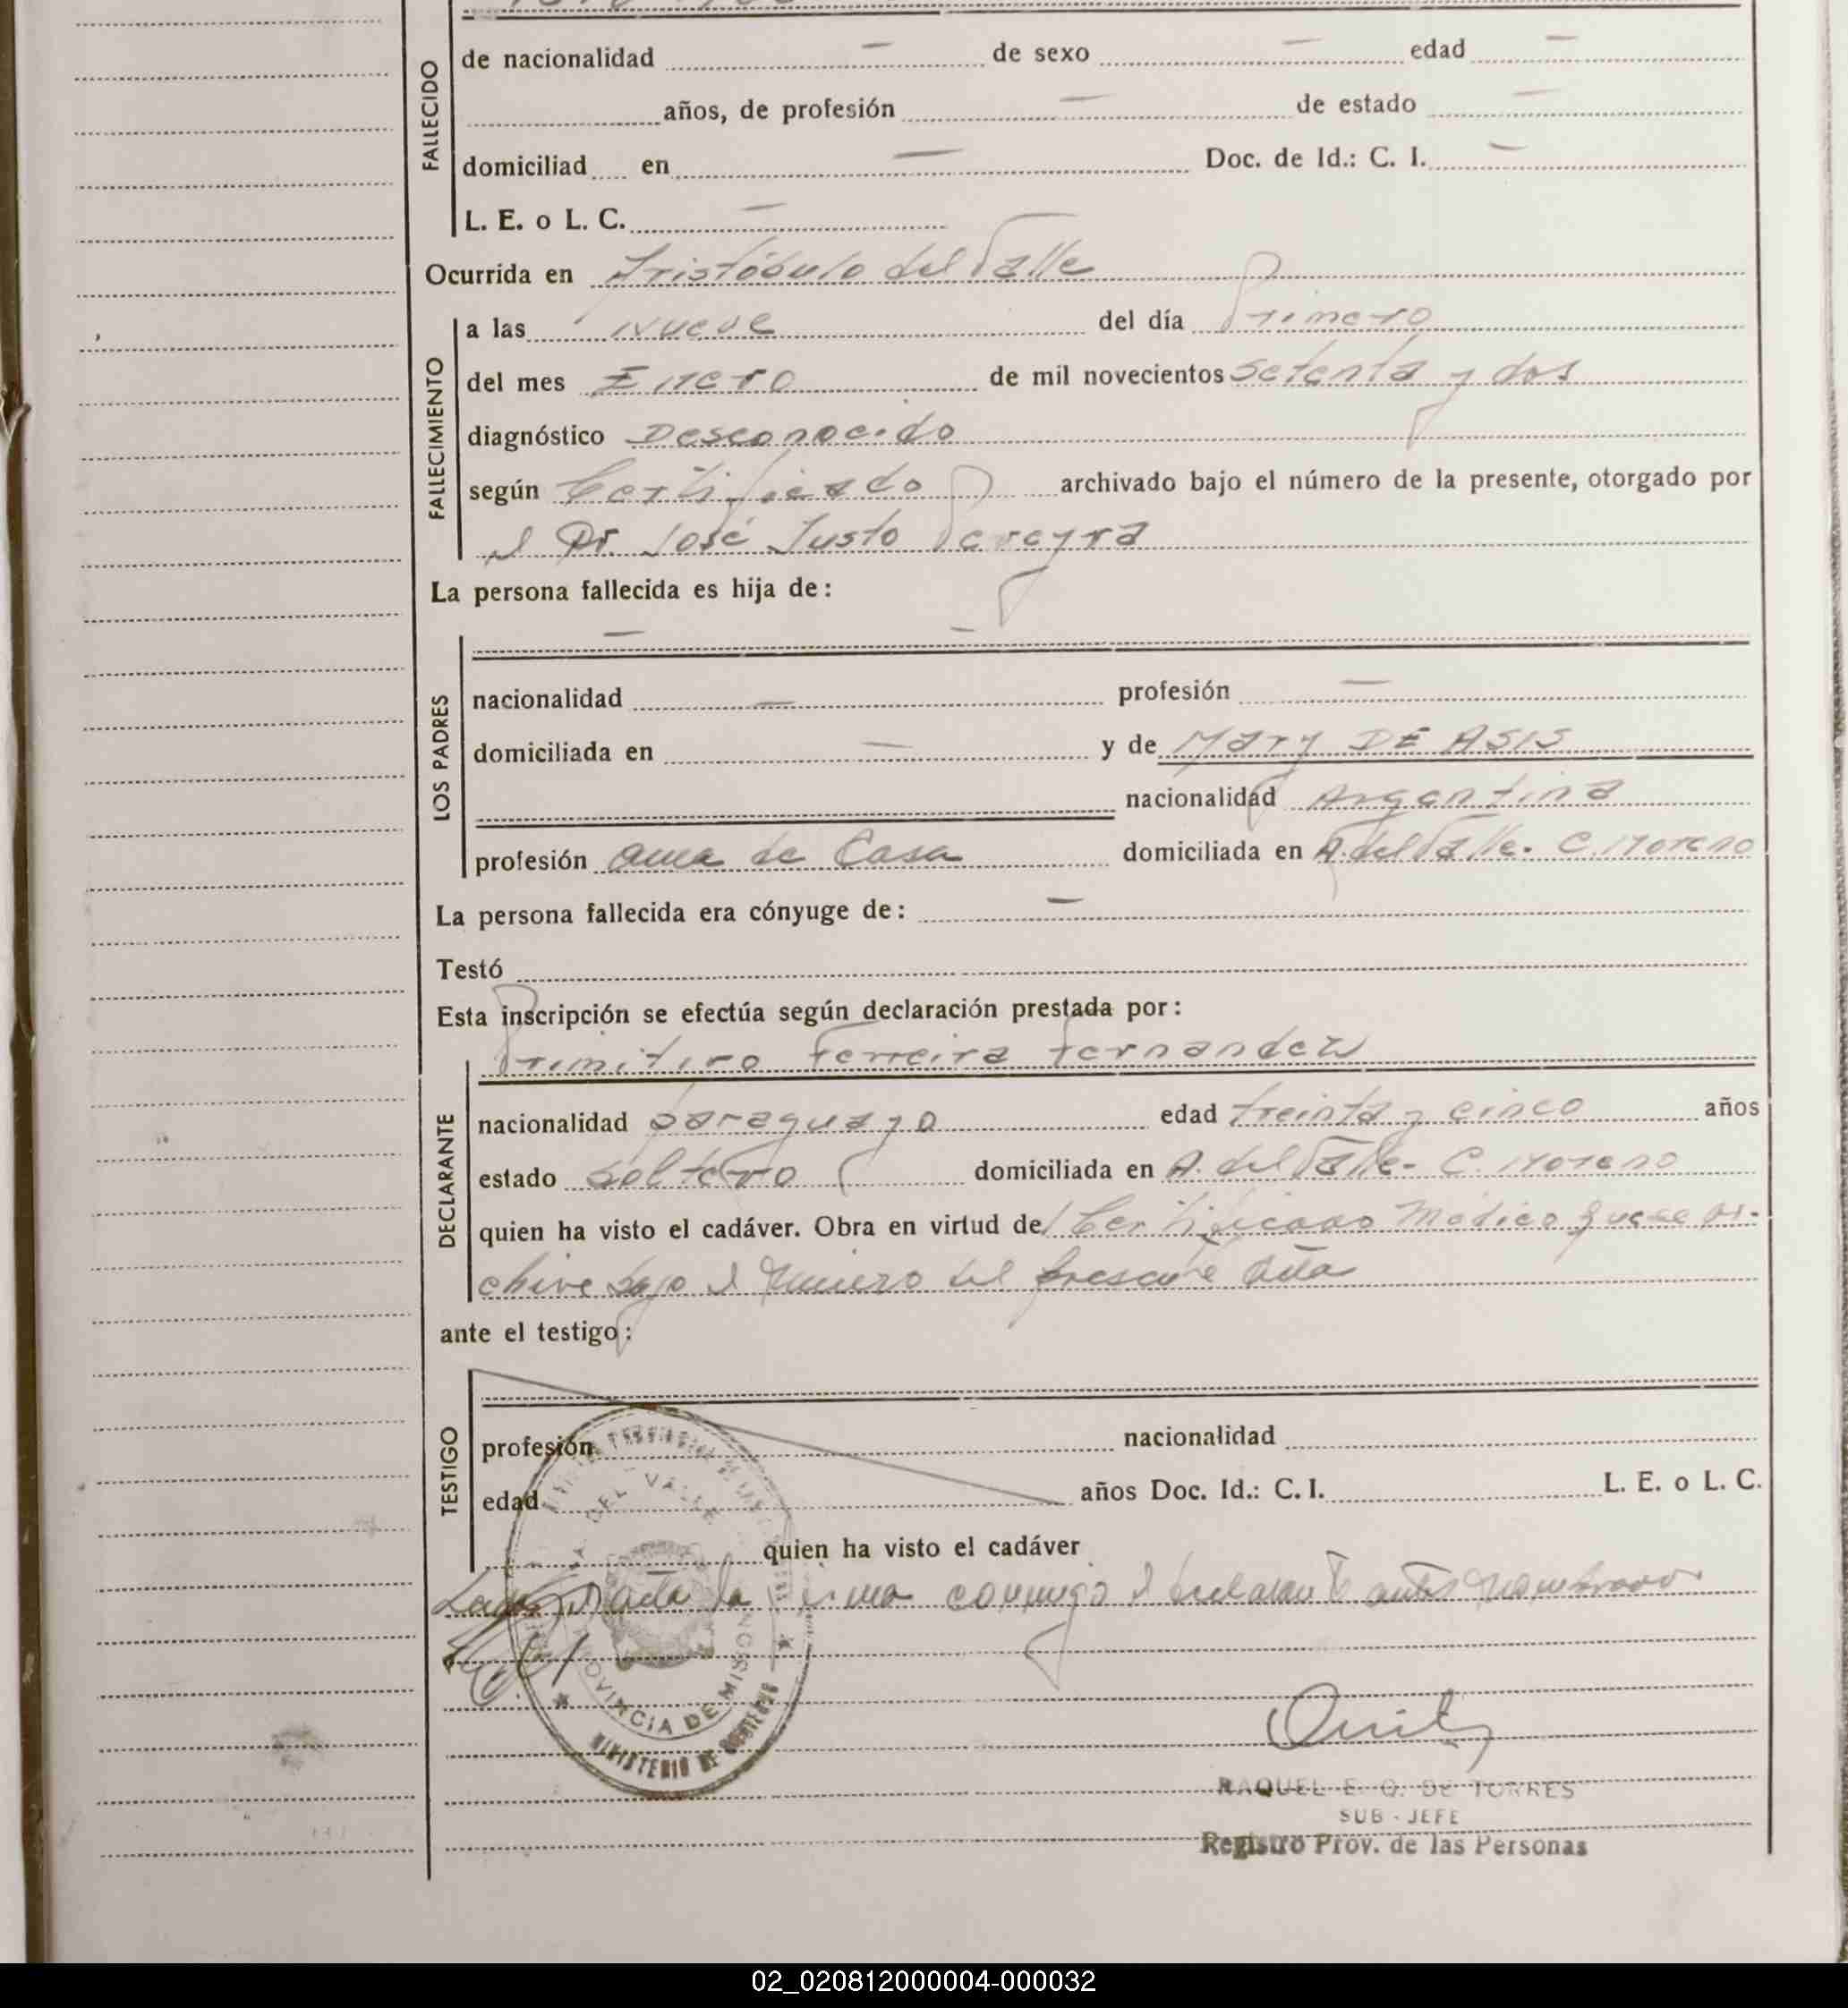 FALLECIDO
de nacionalidad — de sexo — edad —
años, de profesión — de estado —
domiciliad en — Doc. de Id.: C. I. —
L. E. o L. C. —
Ocurrida en Aristóbulo del Valle
FALLECIMIENTO
a las Nueve del día Primero
del mes Enero de mil novecientos setenta y dos
diagnóstico Desconocido
según Certificado archivado bajo el número de la presente, otorgado por
el Dr. José Justo Pereyra
La persona fallecida es hija de:
LOS PADRES
— —
nacionalidad — profesión —
domiciliada en — y de Mary DE ASIS
nacionalidad Argentina
profesión ama de Casa domiciliada en A. del Valle. C. Moreno
La persona fallecida era cónyuge de: —
Testó
Esta inscripción se efectúa según declaración prestada por:
DECLARANTE
Primitivo Ferreira Fernandez
nacionalidad paraguayo edad treinta y cinco años
estado soltero domiciliada en A. del Valle- C. Moreno
quien ha visto el cadáver. Obra en virtud de Certificado Médico que se ar-
chive bajo el número del presente Acta
ante el testigo:
TESTIGO
profesión nacionalidad
edad años Doc. Id.: C. I. L. E. o L. C.
quien ha visto el cadáver
la firma conmigo el declarante antes nombrado
DEL VALLE
PROVINCIA DE MISIONES
MINISTERIO DE GOBIERNO
RAQUEL E. Q. DE TORRES
SUB - JEFE
Registro Prov. de las Personas
02_020812000004-000032